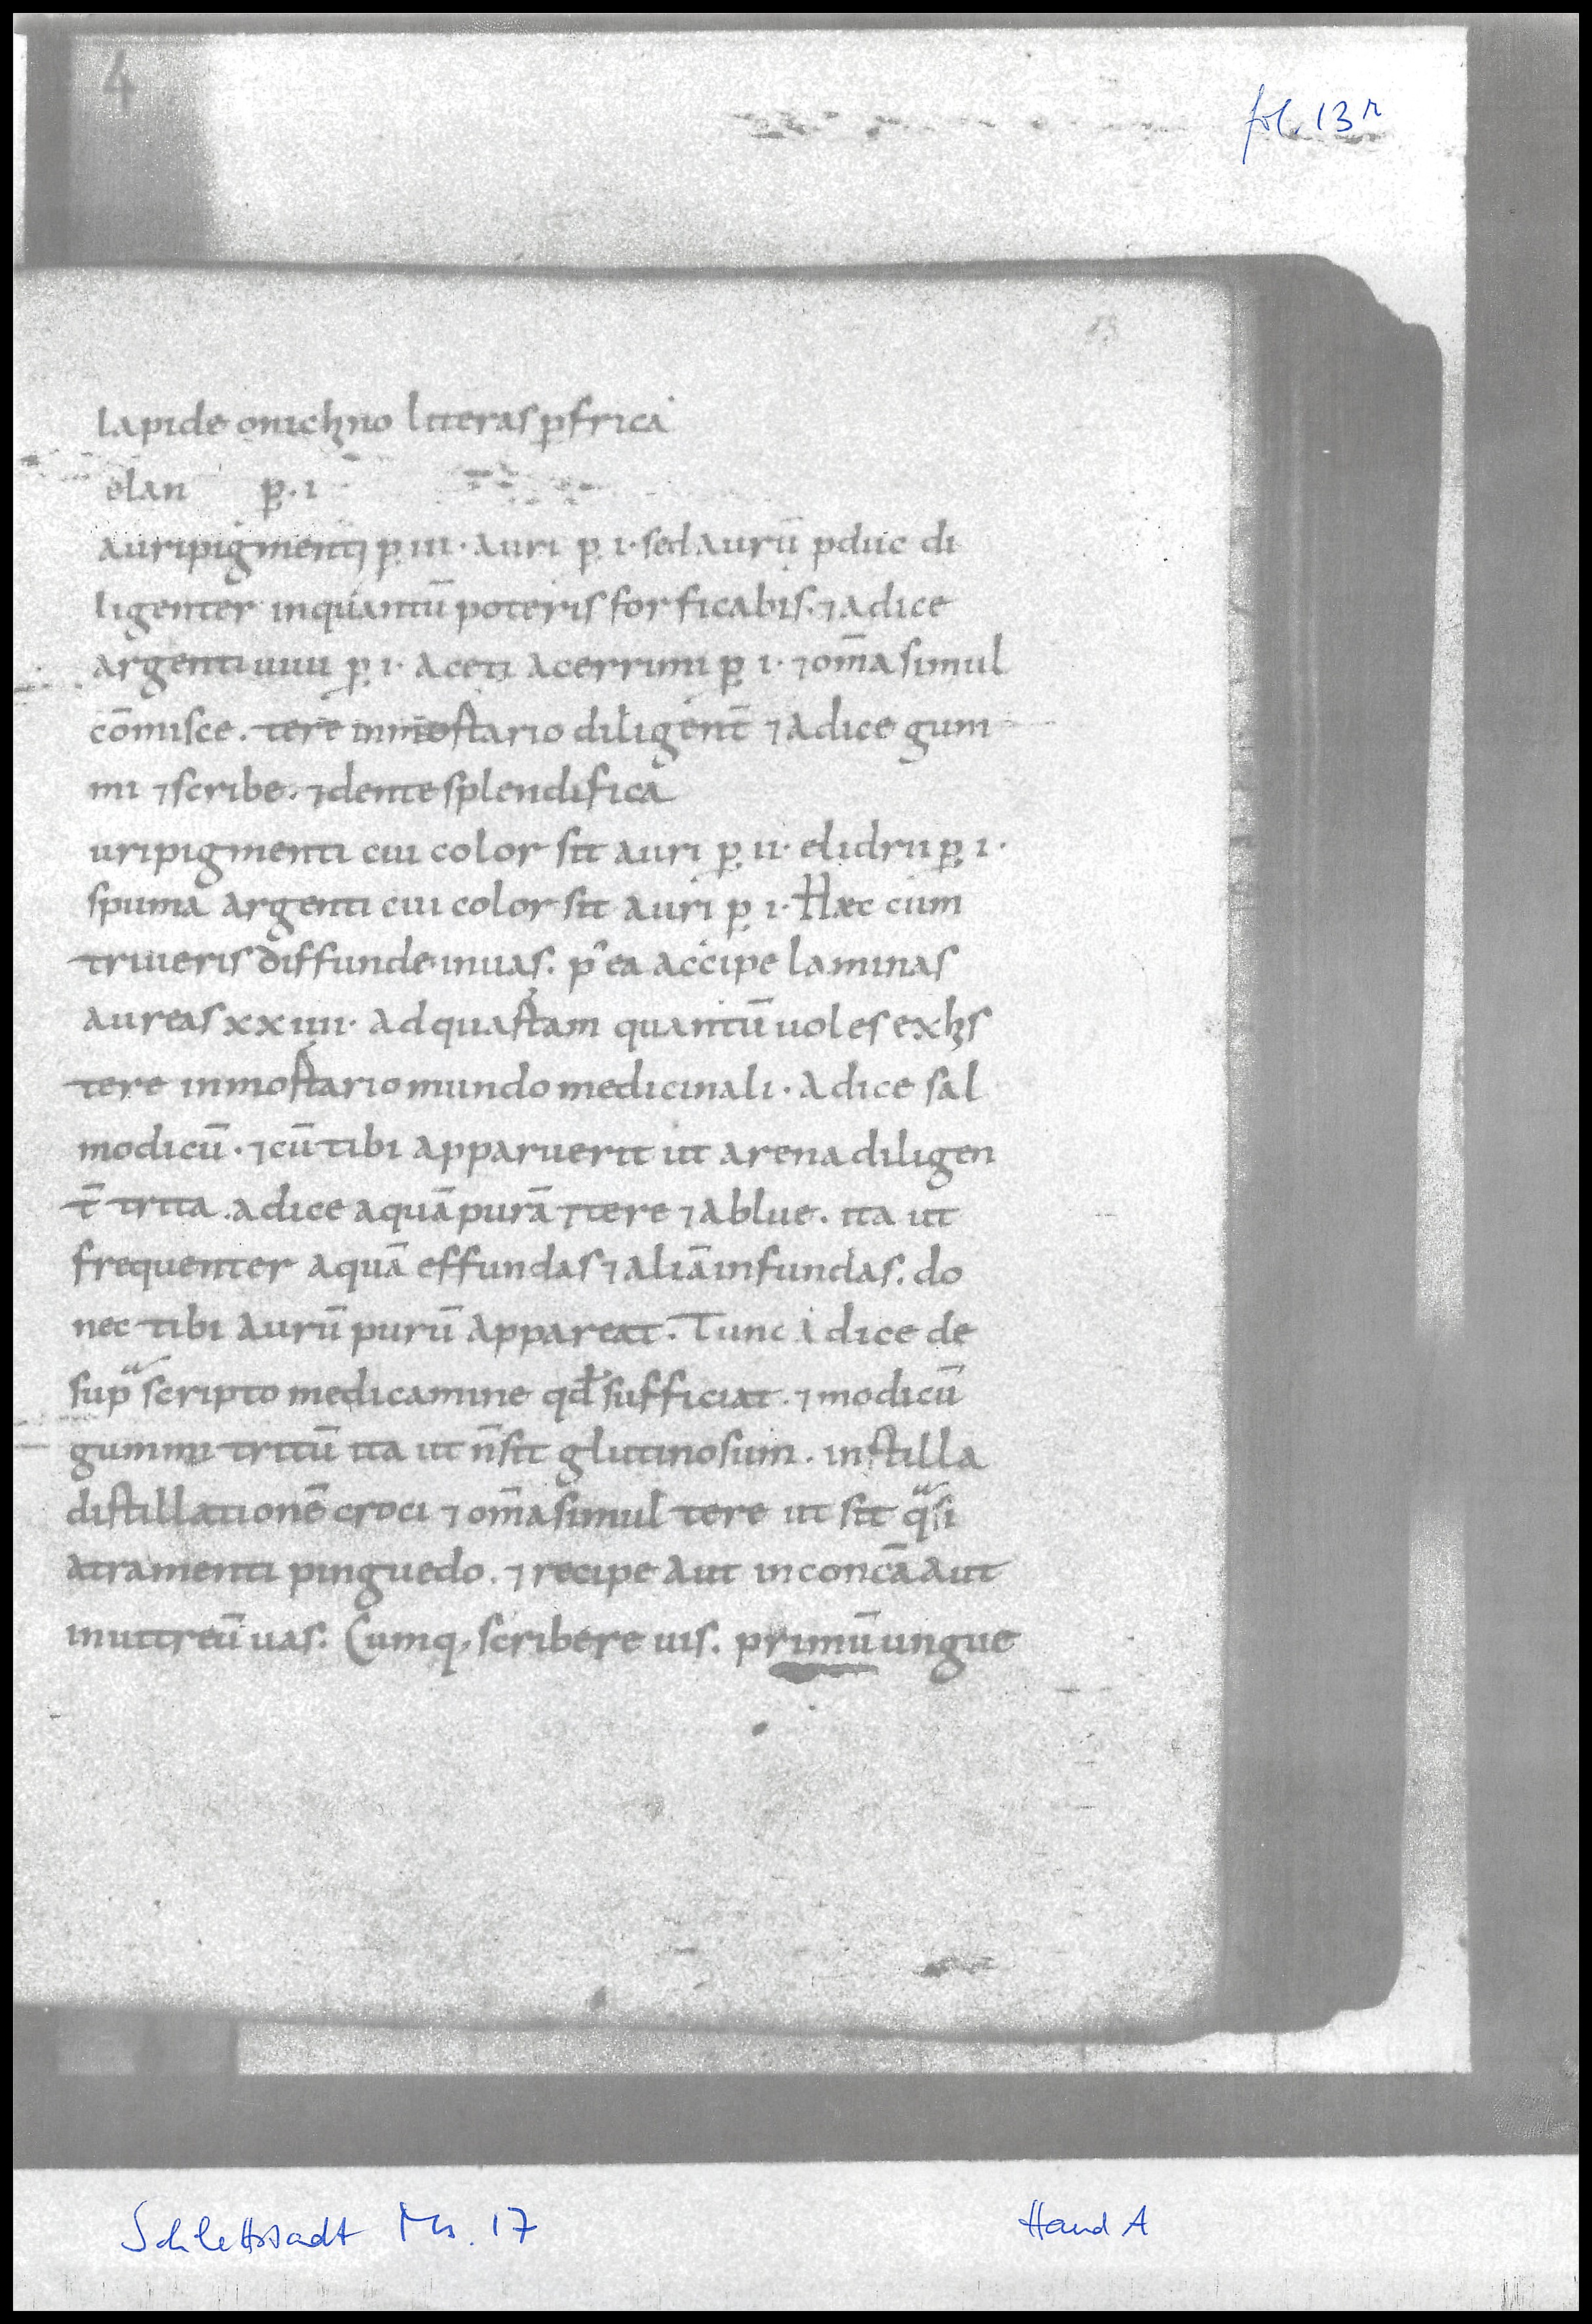 4
fol. 13r
13
lapide onichno litteras ꝑfrica
elan p̣. i
auripigmenti p̣ iii. auri p̣ i. sed aurū ꝓduc di
ligenter inquantū poteris forficabis. ⁊ adice
argenti uiui p̣ i. aceti acerrimi p̣ i. ⁊ om̄a simul
cōmisce. tere inmortario diligent̄ ⁊ adice gum
mi ⁊ scribe. ⁊ dente splendifica
uripigmenti cui color sit auri p̣ ii. elidrii p̣ i.
spuma argenti cui color sit auri p̣ i. Haec cum
triueris diffunde inuas. p᷒ ea accipe laminas
aureas xxiiii. ad quartam quantū uoles ex his
tere inmortario mundo medicinali. adice sal
modicū. ⁊ cū tibi apparuerit ut arena diligen
t̄ trita. adice aquā purā ⁊ tere ⁊ ablue. ita ut
frequenter aquā effundas ⁊ aliā infundas. do
nec tibi aurū purū appareat. Tunc adice de
supͣ scripto medicamine qđ sufficiat. ⁊ modicū
gummi tritū ita ut n̄ sit glutinosum. instilla
distillationē croci ⁊ om̄a simul tere ut sit qͣsi
atramenti pinguedo. ⁊ recipe aut in concā aut
inuitreū uas. Cumq; scribere uis. primū ungue
Schlettstadt Ms. 17
Hand A